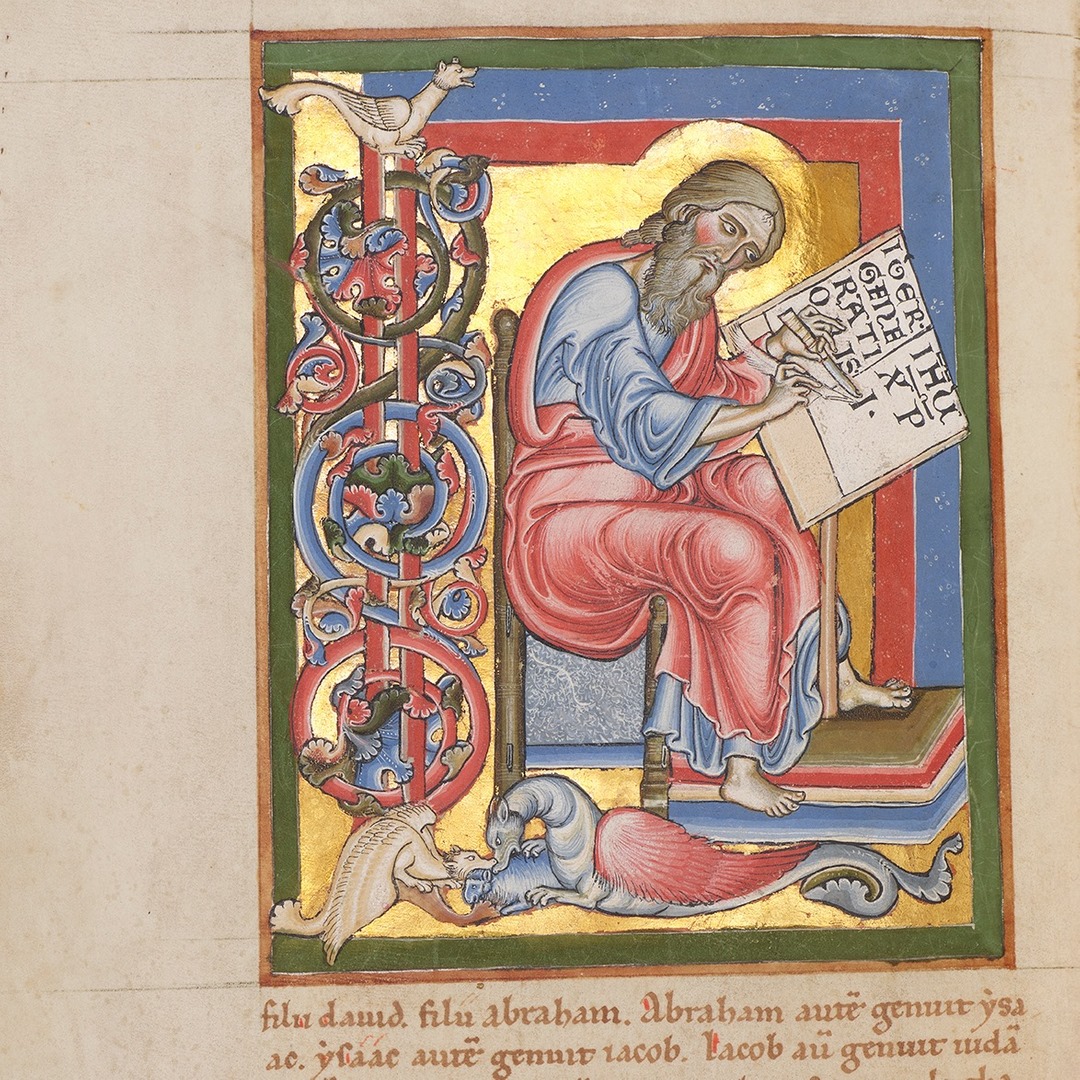 IBER
GENE
RATI
O IS
IHU
XP
I.
filii dauid. filii abraham. Abraham autē genuit ẏsa
ac. ẏsáác autē genuit iacob. Iacob aū genuit iudā